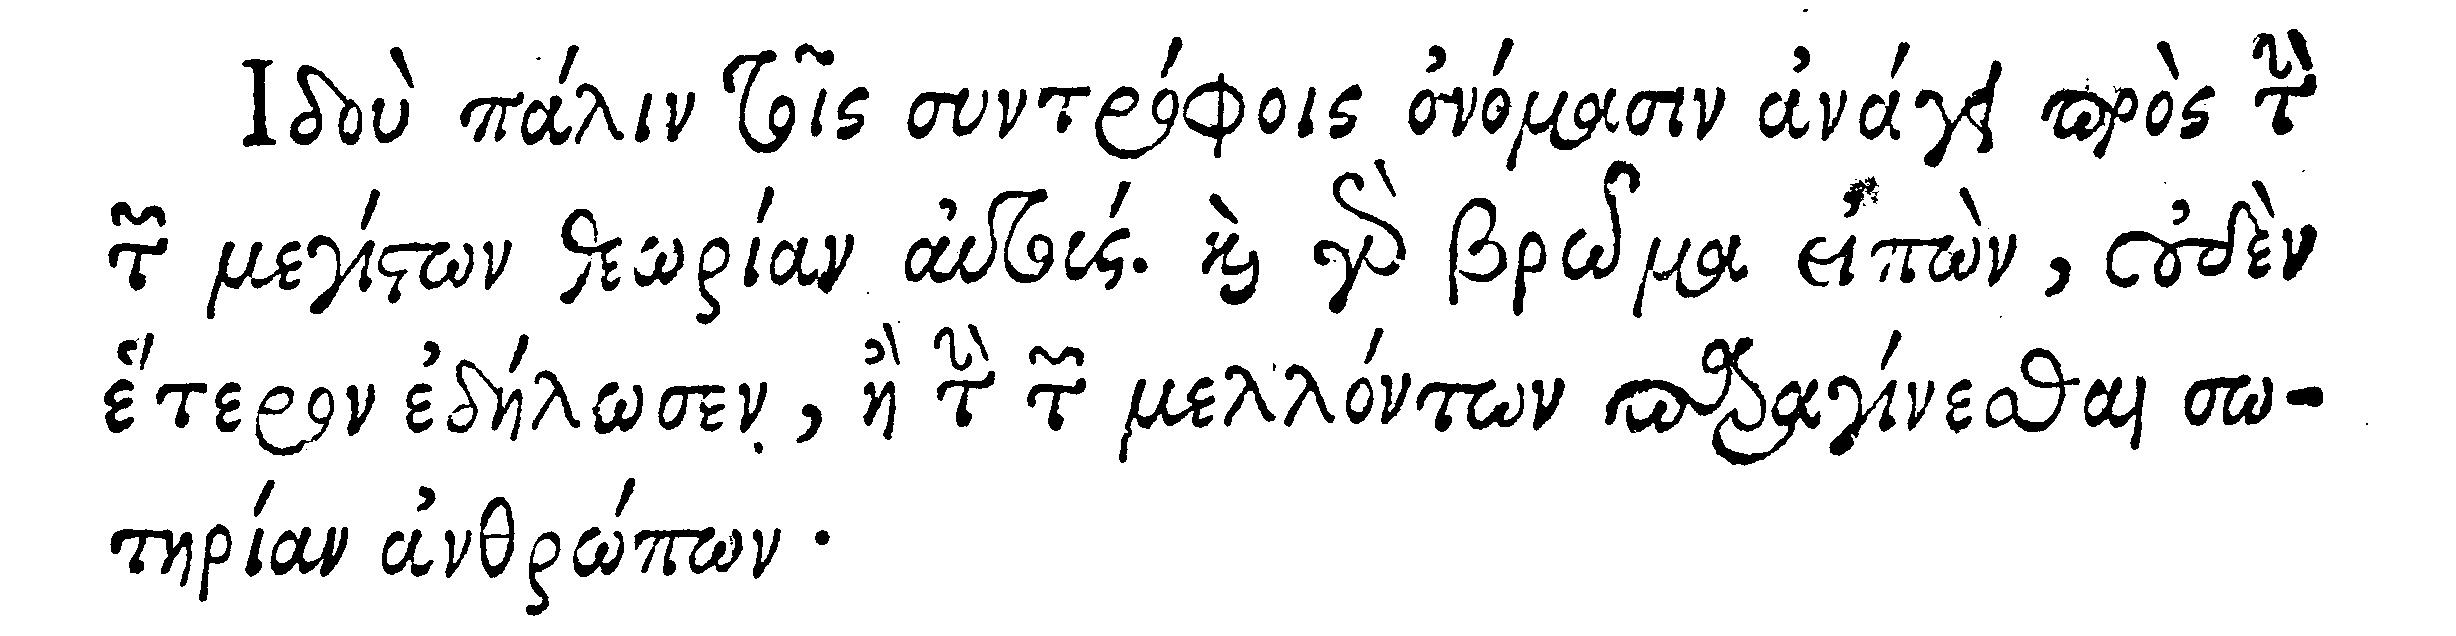 Ἰδοὺ πάλιν τοῖς συντρόφοις ὀνόμασιν ἀνάγει πρὸς τὴν
τῶν μεγίστων θεωρίαν αὐτούς. καὶ γὰρ βρῶμα εἰπὼν, οὐδὲν
ἕτερον ἐδήλωσεν, ἢ τὴν τῶν μελλόντων παραγίνεσθαι σω-
τηρίαν ἀνθρώπων·